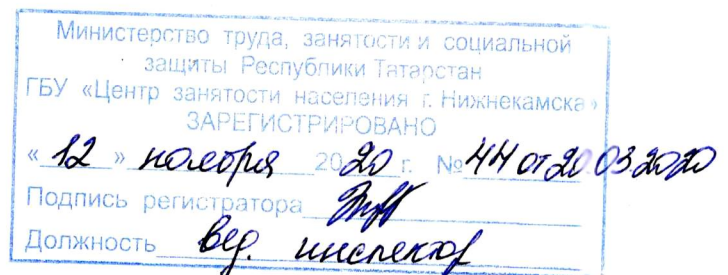 Министерство труда, занятости и социальной
защиты Республики Татарстан
ГБУ «Центр занятости населения г. Нижнекамска»
ЗАРЕГИСТРИРОВАНО
«12» ноября 2020 г. №44 от 20.03.2020
Подпись регистратора
Должность вед. инспектор